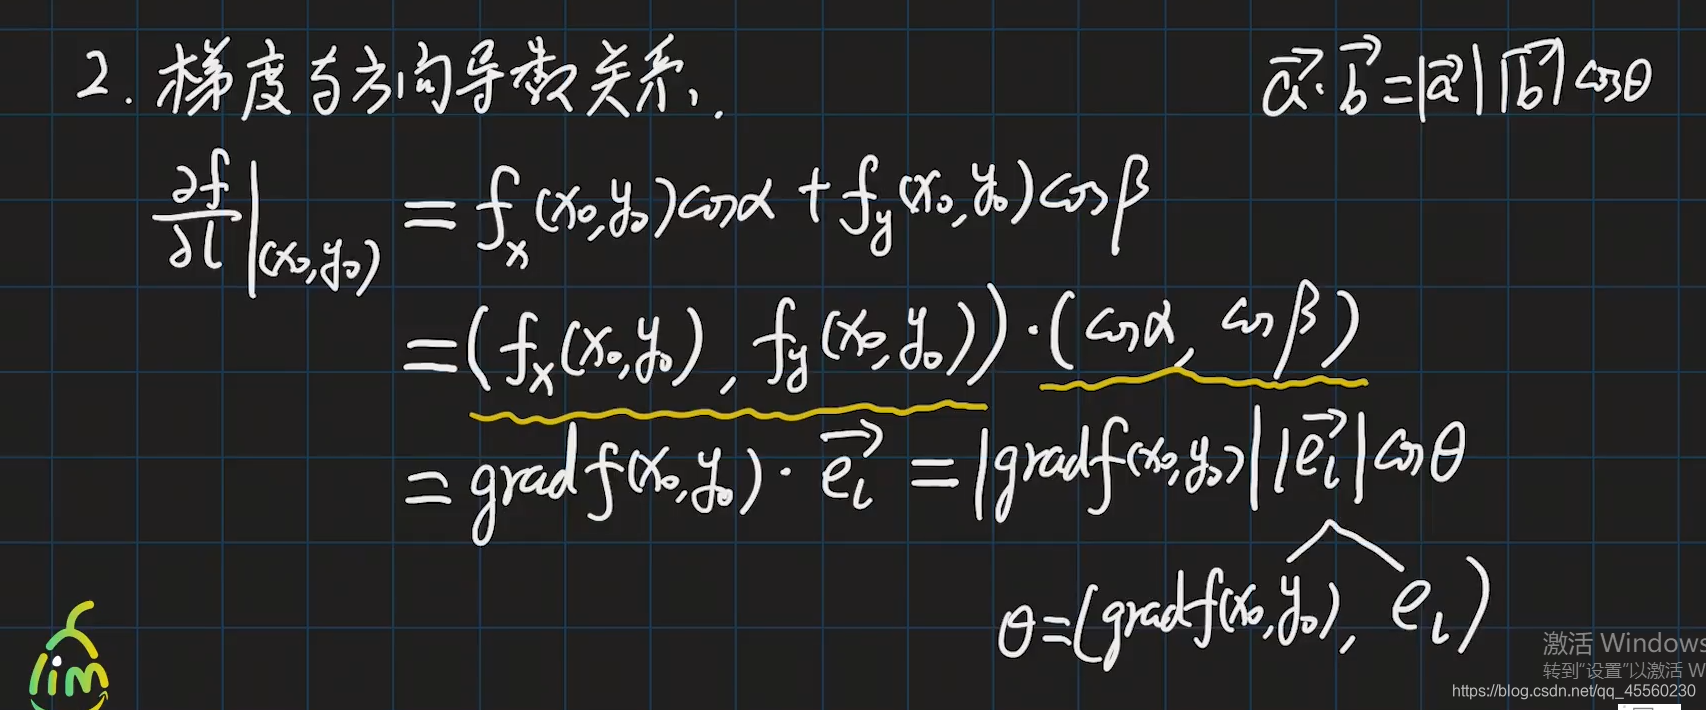 2. 梯度与方向导数关系.
a⃗·b⃗=|a⃗||b⃗|cosθ
∂f/∂l|(x₀,y₀) = fₓ(x₀,y₀)cosα + f_y(x₀,y₀)cosβ
=(fₓ(x₀,y₀), f_y(x₀,y₀))·(cosα, cosβ)
= grad f(x₀,y₀)·e⃗_l = |grad f(x₀,y₀)||e⃗_l|cosθ
θ=(grad f(x₀,y₀), e_l)
lim
激活 Windows
转到"设置"以激活 W
https://blog.csdn.net/qq_45560230